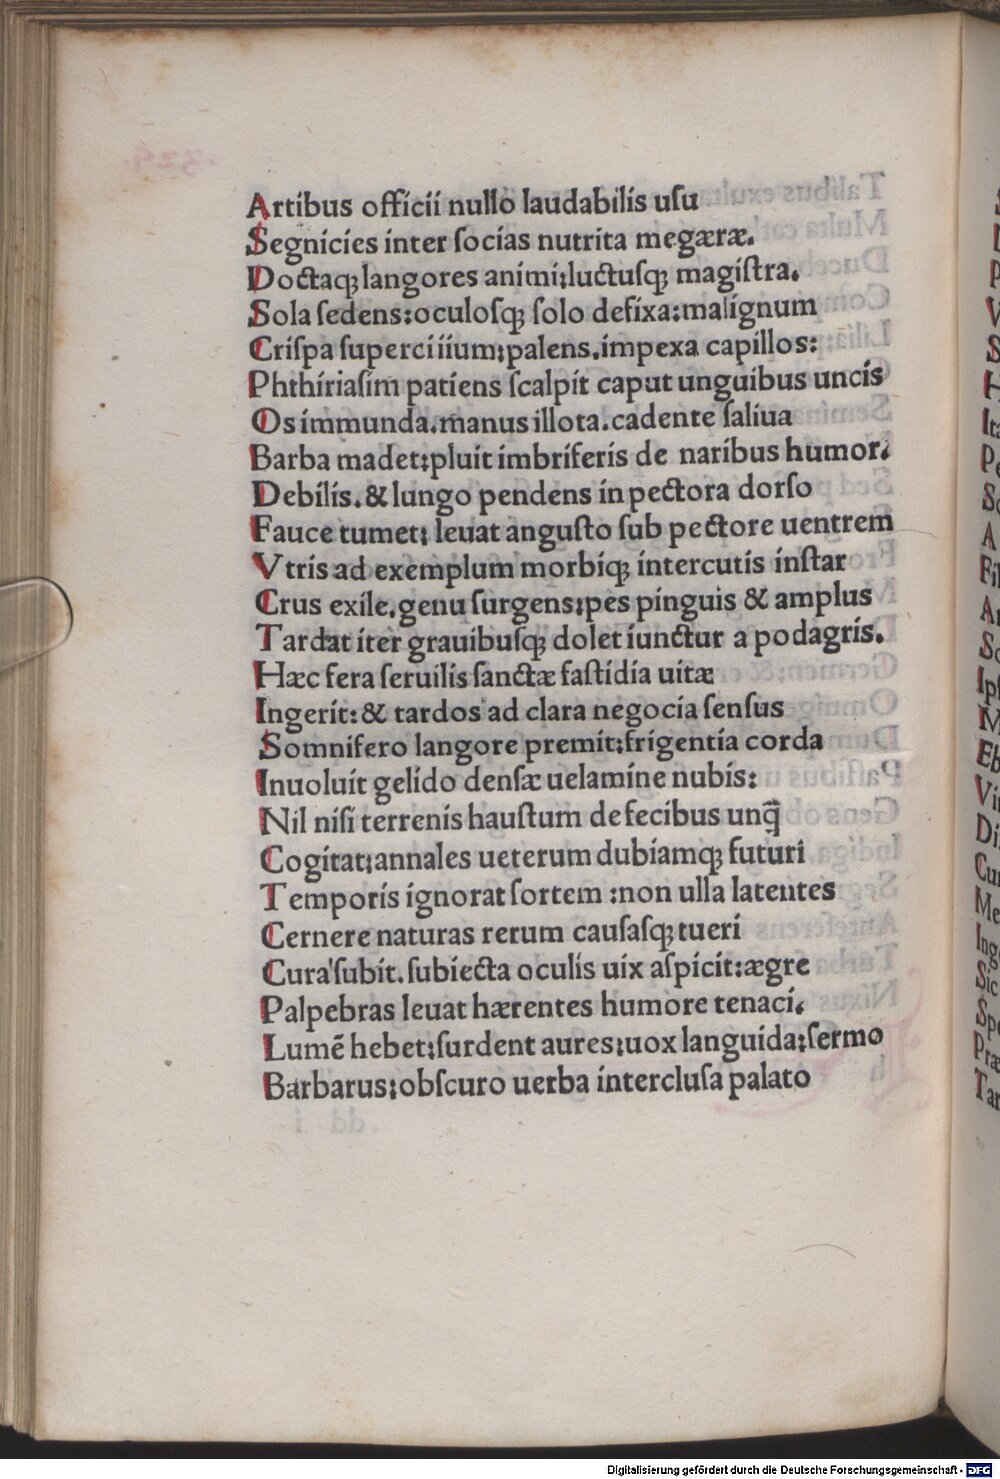 Artibus officii nullo laudabilis uſu
Segnicies inter ſocias nutrita megæræ.
Doctaq; langores animi;luctuſq; magiſtra.
Sola ſedens:oculoſq; ſolo defixa:malignum
Criſpa ſuperciiium;palens.impexa capillos:
Phthiriaſim patiens ſcalpit caput unguibus uncis
Os immunda.manus illota.cadente ſaliua
Barba madet;pluit imbriferis de naribus humor.
Debilis.& lungo pendens in pectora dorſo
Fauce tumet; leuat anguſto ſub pectore uentrem
Vtris ad exemplum morbiq; intercutis inſtar
Crus exile.genu ſurgens;pes pinguis & amplus
Tardat iter grauibuſq; dolet iunctur a podagris.
Hæc fera ſeruilis ſanctæ faſtidia uitæ
Ingerit:& tardos ad clara negocia ſenſus
Somnifero langore premit;frigentia corda
Inuoluit gelido denſæ uelamine nubis:
Nil niſi terrenis hauſtum de fecibus unq̄
Cogitat;annales ueterum dubiamq; futuri
Temporis ignorat ſortem :non ulla latentes
Cernere naturas rerum cauſaſq; tueri
Cura'ſubit.ſubiecta oculis uix aſpicit:ægre
Palpebras leuat hærentes humore tenaci.
Lumē hebet;ſurdent aures;uox languida;ſermo
Barbarus;obſcuro uerba intercluſa palato
Digitalisierung gefördert durch die Deutsche Forschungsgemeinschaft - DFG